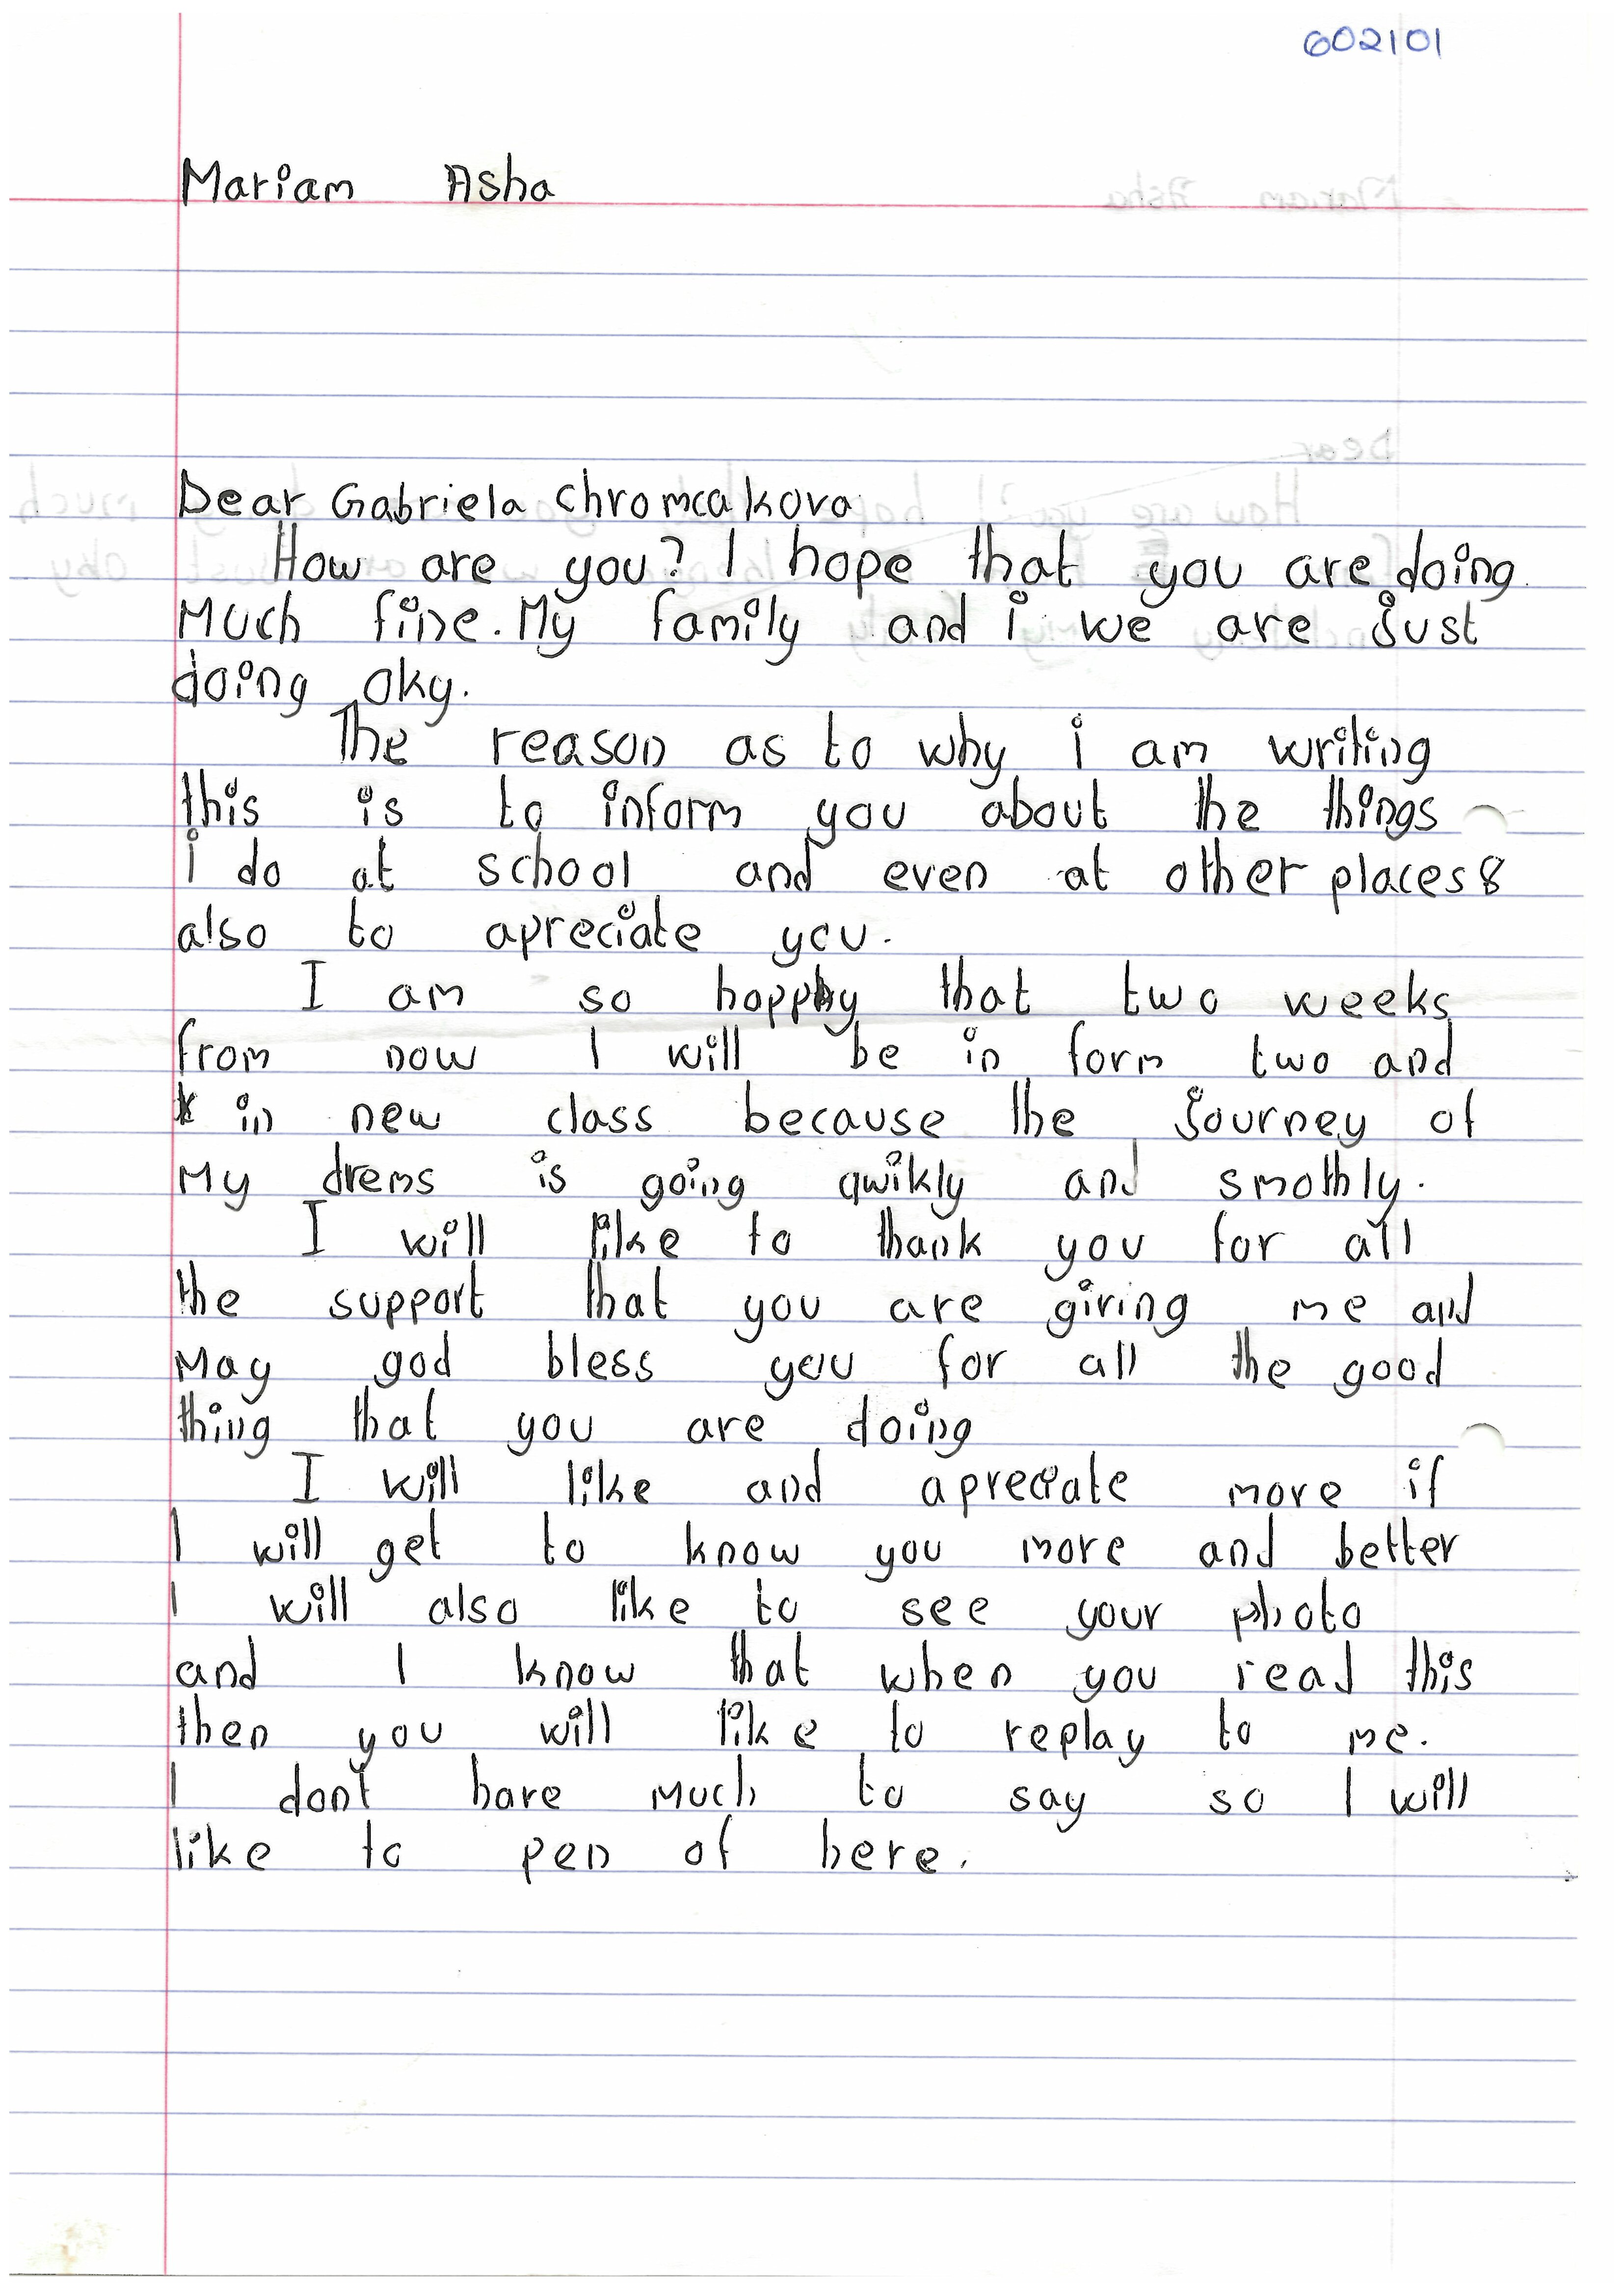 602101
Mariam Asha
Dear Gabriela Chromcakova
How are you? I hope that you are doing
Much fine. My family and i we are just
doing oky.
The reason as to why i am writing
this is to inform you about the things
i do at school and even at other places &
also to apreciate you.
I am so happy that two weeks
from now I will be in form two and
in new class because the journey of
My drems is going qwikly and smothly.
I will like to thank you for all
the support that you are giving me and
May god bless you for all the good
thing that you are doing
I will like and apreciate more if
I will get to know you more and better
I will also like to see your photo
and I know that when you read this
then you will like to replay to me.
I dont have Much to say so I will
like to pen of here.